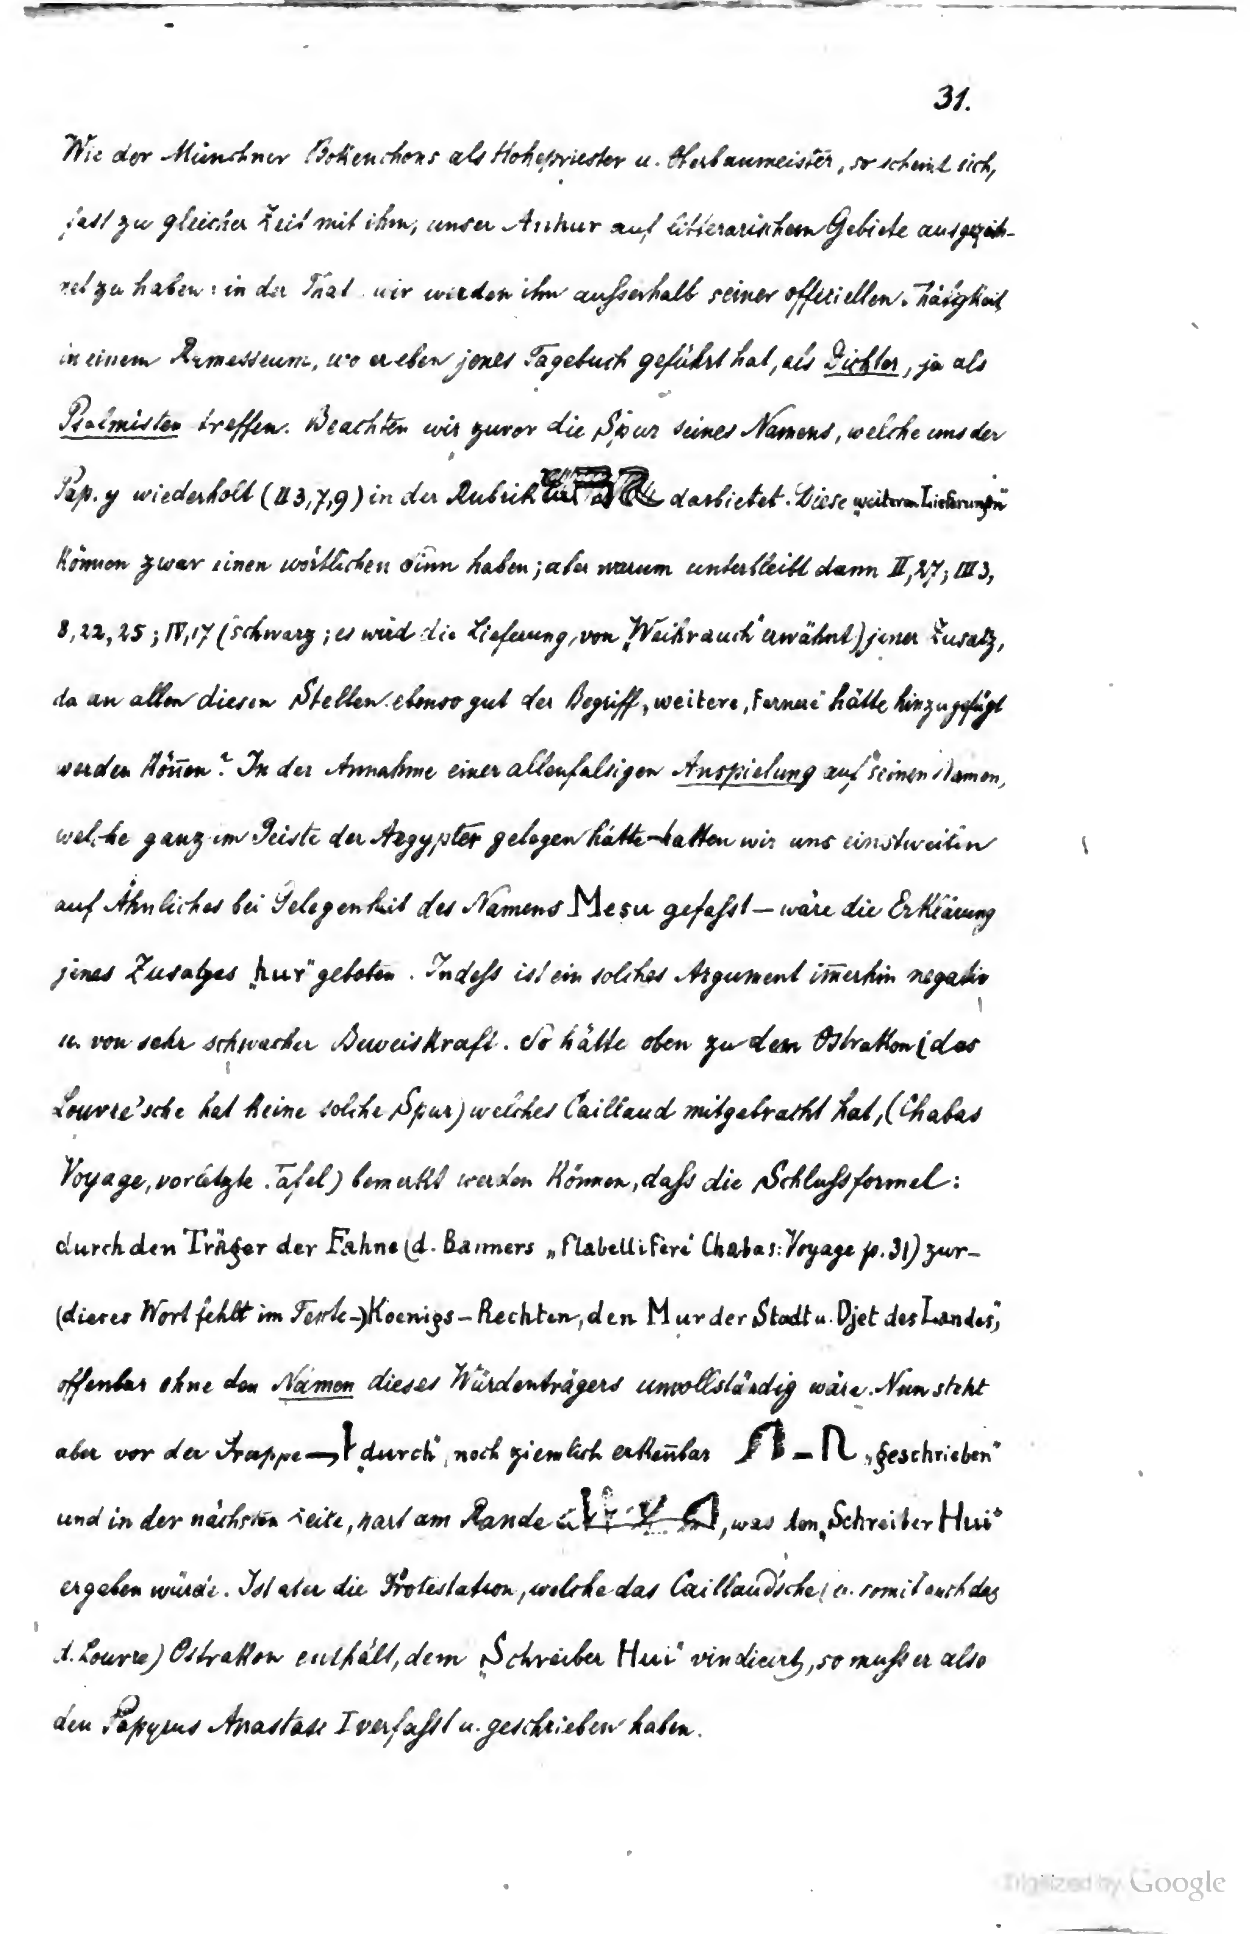 31.
Wie der Münchner Bokenchons als Hohepriester u. Oberbaumeister, so scheint sich,
fast zu gleicher Zeit mit ihm, unser Anhur auf litterarischem Gebiete ausgezeich-
net zu haben: in der That wir werden ihn ausserhalb seiner officiellen Thätigkeit
in einem Ramesseum, wo er eben jenes Tagebuch geführt hat, als Dichter, ja als
Psalmisten treffen. Beachten wir zuvor die Spur seines Namens, welche uns der
Pap. y wiederholt (II 3,7,9) in der Rubrik darbietet. Diese „weiteren Lieferungen"
können zwar einen wörtlichen Sinn haben; aber warum unterbleibt dann II,27; III 3,
8,22,25; IV,17 (schwarz; es wird die Lieferung von „Weihrauch" erwähnt) jener Zusatz,
da an allen diesen Stellen ebenso gut der Begriff „weitere, fernere" hätte hinzugefügt
werden können? In der Annahme einer allenfalsigen Anspielung auf seinen Namen,
welche ganz im Geiste der Aegypter gelegen hätte – hatten wir uns einstweilen
auf Ähnliches bei Gelegenheit des Namens Mesu gefasst – wäre die Erklärung
jenes Zusatzes „hur" geboten. Indess ist ein solches Argument im̄erhin negativ
u. von sehr schwacher Beweiskraft. So hätte oben zu dem Ostrakon (das
Louvre'sche hat keine solche Spur) welches Caillaud mitgebracht hat, (Chabas
Voyage, vorletzte Tafel) bemerkt werden können, dass die Schlussformel:
durch den Träger der Fahne (d. Banners „flabellifere" Chabas: Voyage p. 31) zur-
(dieses Wort fehlt im Texte-) Koenigs-Rechten, den Mur der Stadt u. Djet des Landes",
offenbar ohne den Namen dieses Würdenträgers unvollständig wäre. Nun steht
aber vor der Gruppe „durch", noch ziemlich erken̄bar „geschrieben"
und in der nächsten Zeile, hart am Rande , was den „Schreiber Hui"
ergeben würde. Ist aber die Protestation, welche das Caillaud'sche (u. somit auch das
d. Louvre) Ostrakon enthält, dem „Schreiber Hui" vindicirt, so muss er also
den Papyrus Anastasi I verfasst u. geschrieben haben.
Digitized by Google